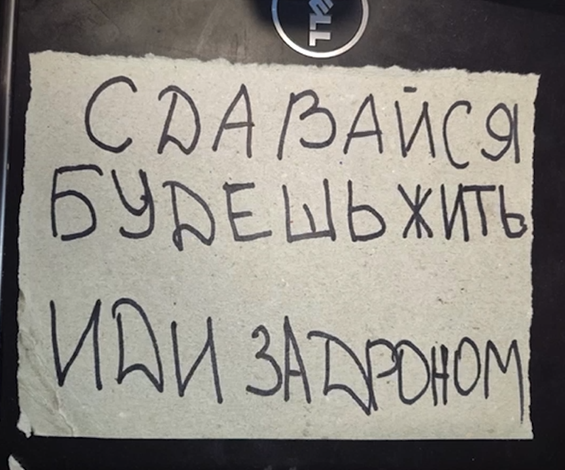 DELL
СДАВАЙСЯ
БУДЕШЬ ЖИТЬ
ИДИ ЗА ДРОНОМ